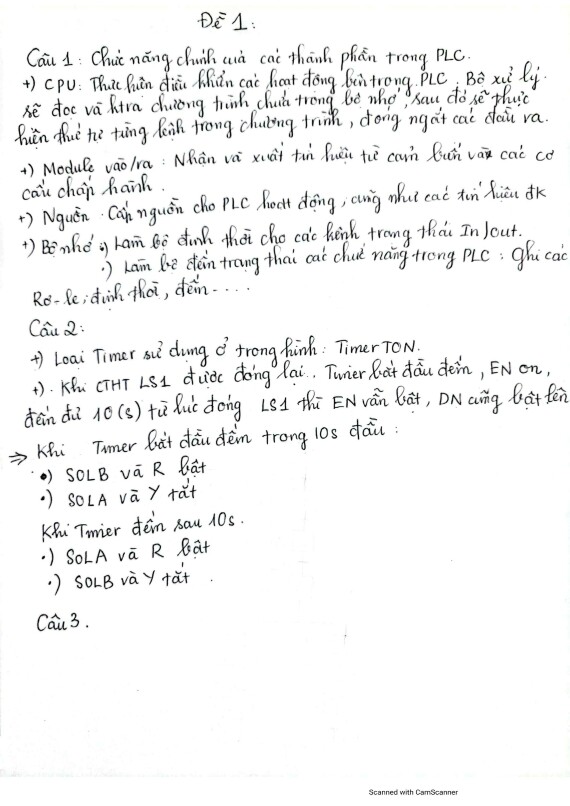 Đề 1:
Câu 1: Chức năng chính của các thành phần trong PLC.
+) CPU: Thực hiện điều khiển các hoạt động bên trong PLC. Bộ xử lý
sẽ đọc và ktra chương trình chứa trong bộ nhớ, sau đó sẽ thực
hiện thứ tự từng lệnh trong chương trình, đóng ngắt các đầu ra.
+) Module vào/ra: Nhận và xuất tín hiệu từ cảm biến vào các cơ
cấu chấp hành.
+) Nguồn: Cấp nguồn cho PLC hoạt động, cũng như các tín hiệu đk
+) Bộ nhớ •) Làm bộ định thời cho các kênh trạng thái In/out.
•) Làm bộ đếm trạng thái các chức năng trong PLC: Ghi các
Rơ-le; định thời, đếm....
Câu 2:
+) Loại Timer sử dụng ở trong hình: Timer TON.
+). Khi CTHT LS1 được đóng lại. Timer bắt đầu đếm, EN on,
đếm đủ 10(s) từ lúc đóng LS1 thì EN vẫn bật, DN cũng bật lên
⇒ Khi Timer bắt đầu đếm trong 10s đầu:
•) SOLB và R bật
•) SOLA và Y tắt
Khi Timer đếm sau 10s.
•) SOLA và R bật
•) SOLB và Y tắt.
Câu 3.
Scanned with CamScanner